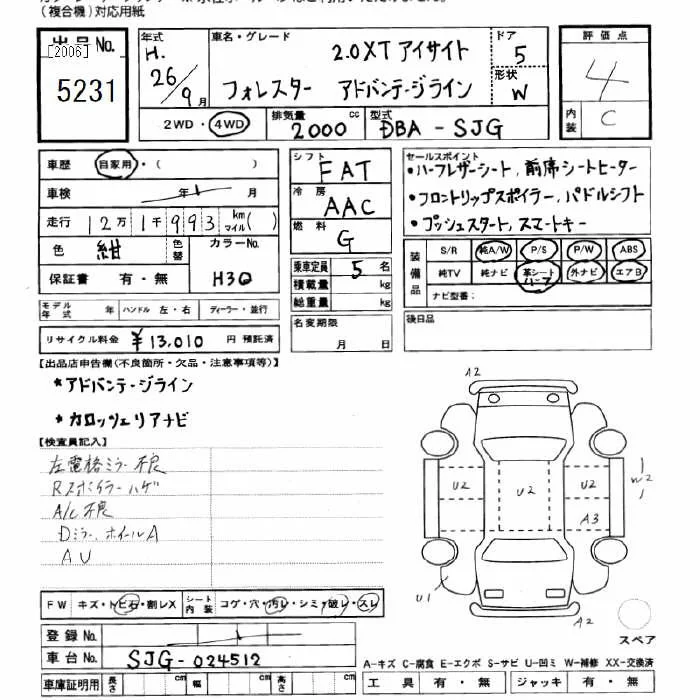 (複合機)対応用紙
出品No.
[2006]
5231
年式
H.
26/9月
車名・グレード
2.0XT アイサイト
フォレスター アドバンテージライン
ドア
5
形状
W
評価点
4
内装
C
2WD・4WD
排気量
2000 cc
型式
DBA-SJG
車歴 自家用・( )
車検 年 月
走行 12万1千993 km マイル( )
色 紺 色替 カラーNo. H3Q
保証書 有・無
モデル年式 年 ハンドル 左・右 ディーラー・並行
リサイクル料金 ¥13,010 円 預託済
シフト FAT
冷房 AAC
燃料 G
乗車定員 5 名
積載量 kg
総重量 kg
名変期限
月 日
セールスポイント
・ハーフレザーシート, 前席シートヒーター
・フロントリップスポイラー, パドルシフト
・プッシュスタート, スマートキー
装備品
S/R 純A/W P/S P/W ABS
純TV 純ナビ 革シート ハーフ 外ナビ エアB
ナビ型番:
後日品
【出品店申告欄(不良箇所・欠品・注意事項等)】
*アドバンテージライン
*カロッツェリアナビ
【検査員記入】
左電格ミラー不良
Rスポイラーハゲ
A/C不良
Dミラー、ホイールA
AU
A2
U2
U2
U2
A3
W2
U1
A2
スペア
FW キズ・トビ石・割レX シート内装 コゲ・穴・汚レ・シミ・破レ・スレ
登録No.
車台No. SJG-024512
車庫証明用 長さ cm 幅 cm 高さ cm
A-キズ C-腐食 E-エクボ S-サビ U-凹ミ W-補修 XX-交換済
工具 有・無 ジャッキ 有・無